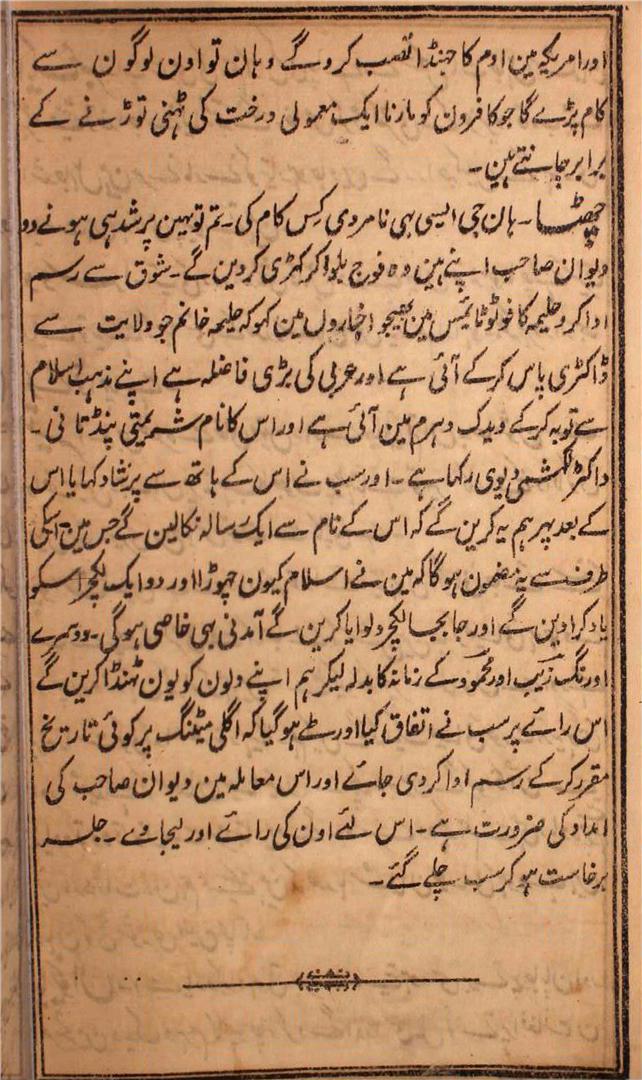 اور امریکہ مین اوم کا جہنڈا نصب کروگے وہان تو اون لوگون سے
کام پڑے گا جو کافرون کو مارنا ایک معمولی درخت کی ٹہنی توڑنے کے
برابر جانتے ہین۔
چھٹا۔ ہان جی ایسی بہی نامردی کس کام کی۔ تم توہین پر شدہی ہونے دو
دیوان صاحب اپنے ہین وہ فوج بلوا کر کہڑی کر دین گے۔ شوق سے رسم
ادا کرو حلیمہ کا فوٹو ٹائیمس مین بھیجو اخبارول مین کہو کہ حلیمہ خانم جو ولایت سے
ڈاکٹری پاس کرکے آئی ہے اور عربی کی بڑی فاضلہ ہے اپنے مذہب اسلام
سے توبہ کرکے ویدک دہرم مین آئی ہے اور اس کا نام شریمتی پنڈتانی۔
ڈاکٹر لکشمی دیوی رکہا ہے۔ اور سب نے اس کے ہاتھ سے پرشاد کہایا اس
کے بعد پہر ہم یہ کرین گے کہ اس کے نام سے ایک رسالہ نکالین گے جس مین اسکی
طرف سے یہ مضمون ہوگا کہ مین نے اسلام کیون چہوڑا اور دو ایک لکچر اسکو
یاد کرا دین گے اور جابجا لکچر دلوایا کرین گے آمدنی بہی خاصی ہوگی۔ دوسرے
اورنگ زیب اور محمود کے زمانہ کا بدلہ لیکر ہم اپنے دلون کو یون ٹہنڈا کرین گے
اس رائے پر سب نے اتفاق کیا اور طے ہوگیا کہ اگلی میٹنگ پر کوئی تاریخ
مقرر کرکے رسم ادا کر دی جائے اور اس معاملہ مین دیوان صاحب کی
امداد کی ضرورت ہے۔ اس لئے اون کی رائے اور لیجاوے۔ جلسہ
برخاست ہو کر سب چلے گئے۔